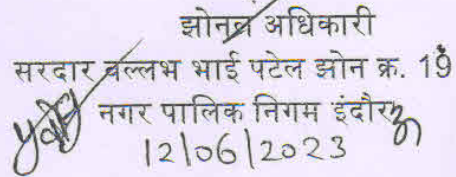 झोनल अधिकारी
सरदार वल्लभ भाई पटेल झोन क्र. 19
नगर पालिक निगम इंदौर
12/06/2023